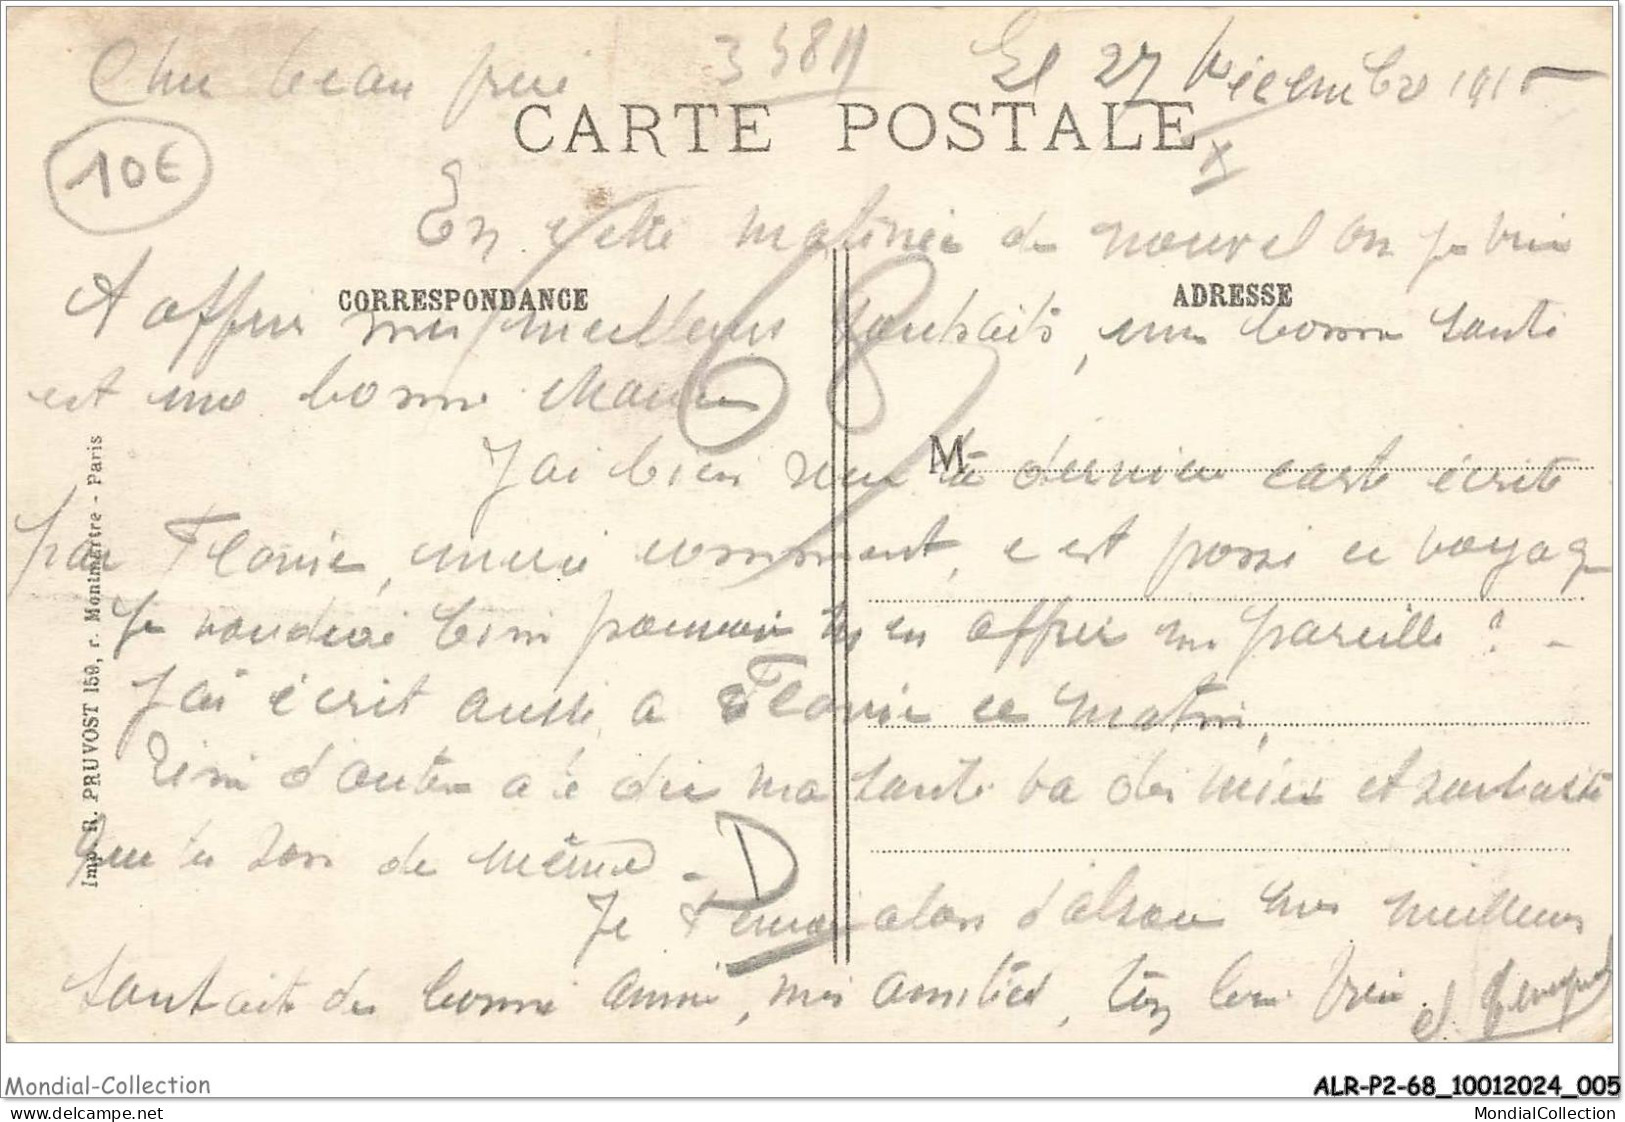 Cher beau frere
Le 27 Décembre 1915
CARTE POSTALE
10€
En cette matinée de nouvel an je vien
CORRESPONDANCE
ADRESSE
A offrir mes meilleurs souhaits, une bonne santé
est une bonne chance
J'ai bien reçu ta dernière carte écrite
M
par Flavie, merci comment, c est passé ce voyage
je voudrai bien pouvoir en offrir un pareille ? -
J'ai écrit aussi a Flavie ce matin,
Rien d'autre a te dire ma santé va des mieux et souhaite
que tu sois de même -
D
Je alors d'alsace mes meilleurs
souhaits de bonne année, mes amitiés, ton beau frère
Imp. R. PRUVOST 159, r. Montmartre - Paris
Mondial-Collection
ALR-P2-68_10012024_005
www.delcampe.net
MondialCollection